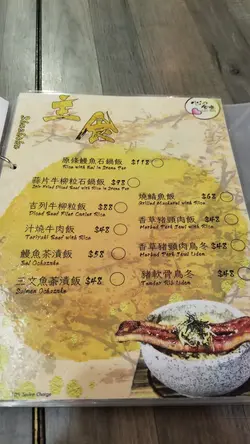 主食
原條鰻魚石鍋飯 $118
Rice with Eel in Stone Pot
蒜片牛柳粒石鍋飯 $78
Stir Fried Diced Beef with Rice in Stone Pot
吉列牛柳粒飯 $88
Diced Beef Filet Cutlet Rice
汁燒牛肉飯 $48
Teriyaki Beef with Rice
鰻魚茶漬飯 $58
Eel Ochazuke
三文魚茶漬飯 $48
Salmon Ochazuke
燒鯖魚飯 $68
Grilled Mackerel with Rice
香草豬頸肉飯 $48
Herbed Pork Jowl with Rice
香草豬頸肉烏冬 $48
Herbed Pork Jowl Udon
豬軟骨烏冬 $48
Tender Rib Udon
10% Service Charge